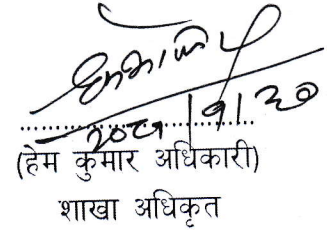 २०८१/१/३०
(हेम कुमार अधिकारी)
शाखा अधिकृत